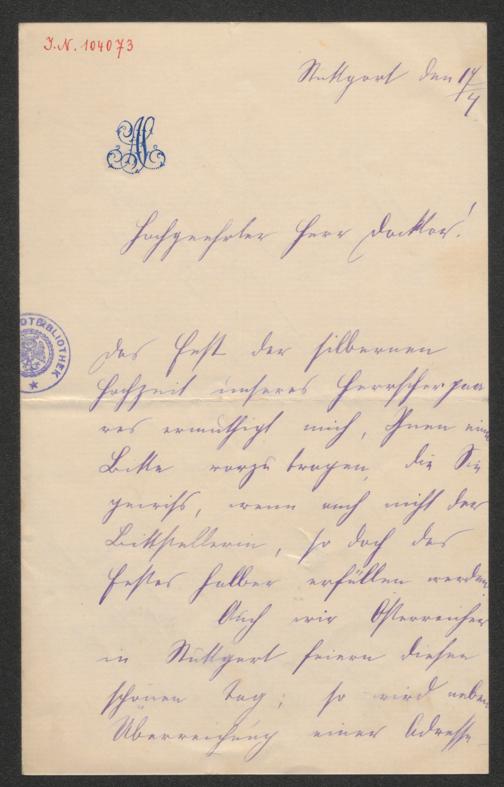 I.N. 104073
Stuttgart den 14/4
Hochgeehrter Herr Docktor!
Das Fest der silbernen
Hochzeit unseres Herrscherpaa
res ermuthigt mich, Ihnen eine
Bitte vorzutragen, die Sie
gewiss, wenn auch nicht der
Bittstellerin, so doch des
Festes halber erfüllen werden.
Auch wir Österreicher
in Stuttgart feiern diesen
schönen Tag; so wird neben
Überreichung einer Adresse